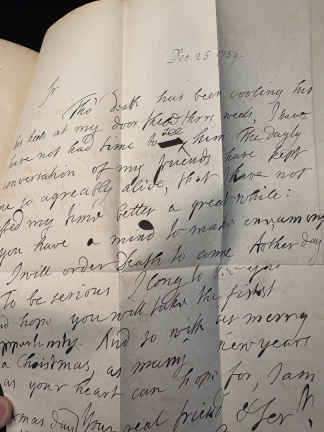 Dec 25 1732
Sr
Tho' death has been cooling his
his heels at my door these three weeks, I have
have not had time to see him. The dayly
conversation of my friends have kept
me so agreably alive, that I have not
my time better a great while:
you have a mind to make one,
I will order Death to come t'other day
To be serious I long to you
nd hope you will take the first
opportunity. And so with as merry
a Christmas, as merry new years
as your heart can hope for, I am
mas day your real friend & Sert